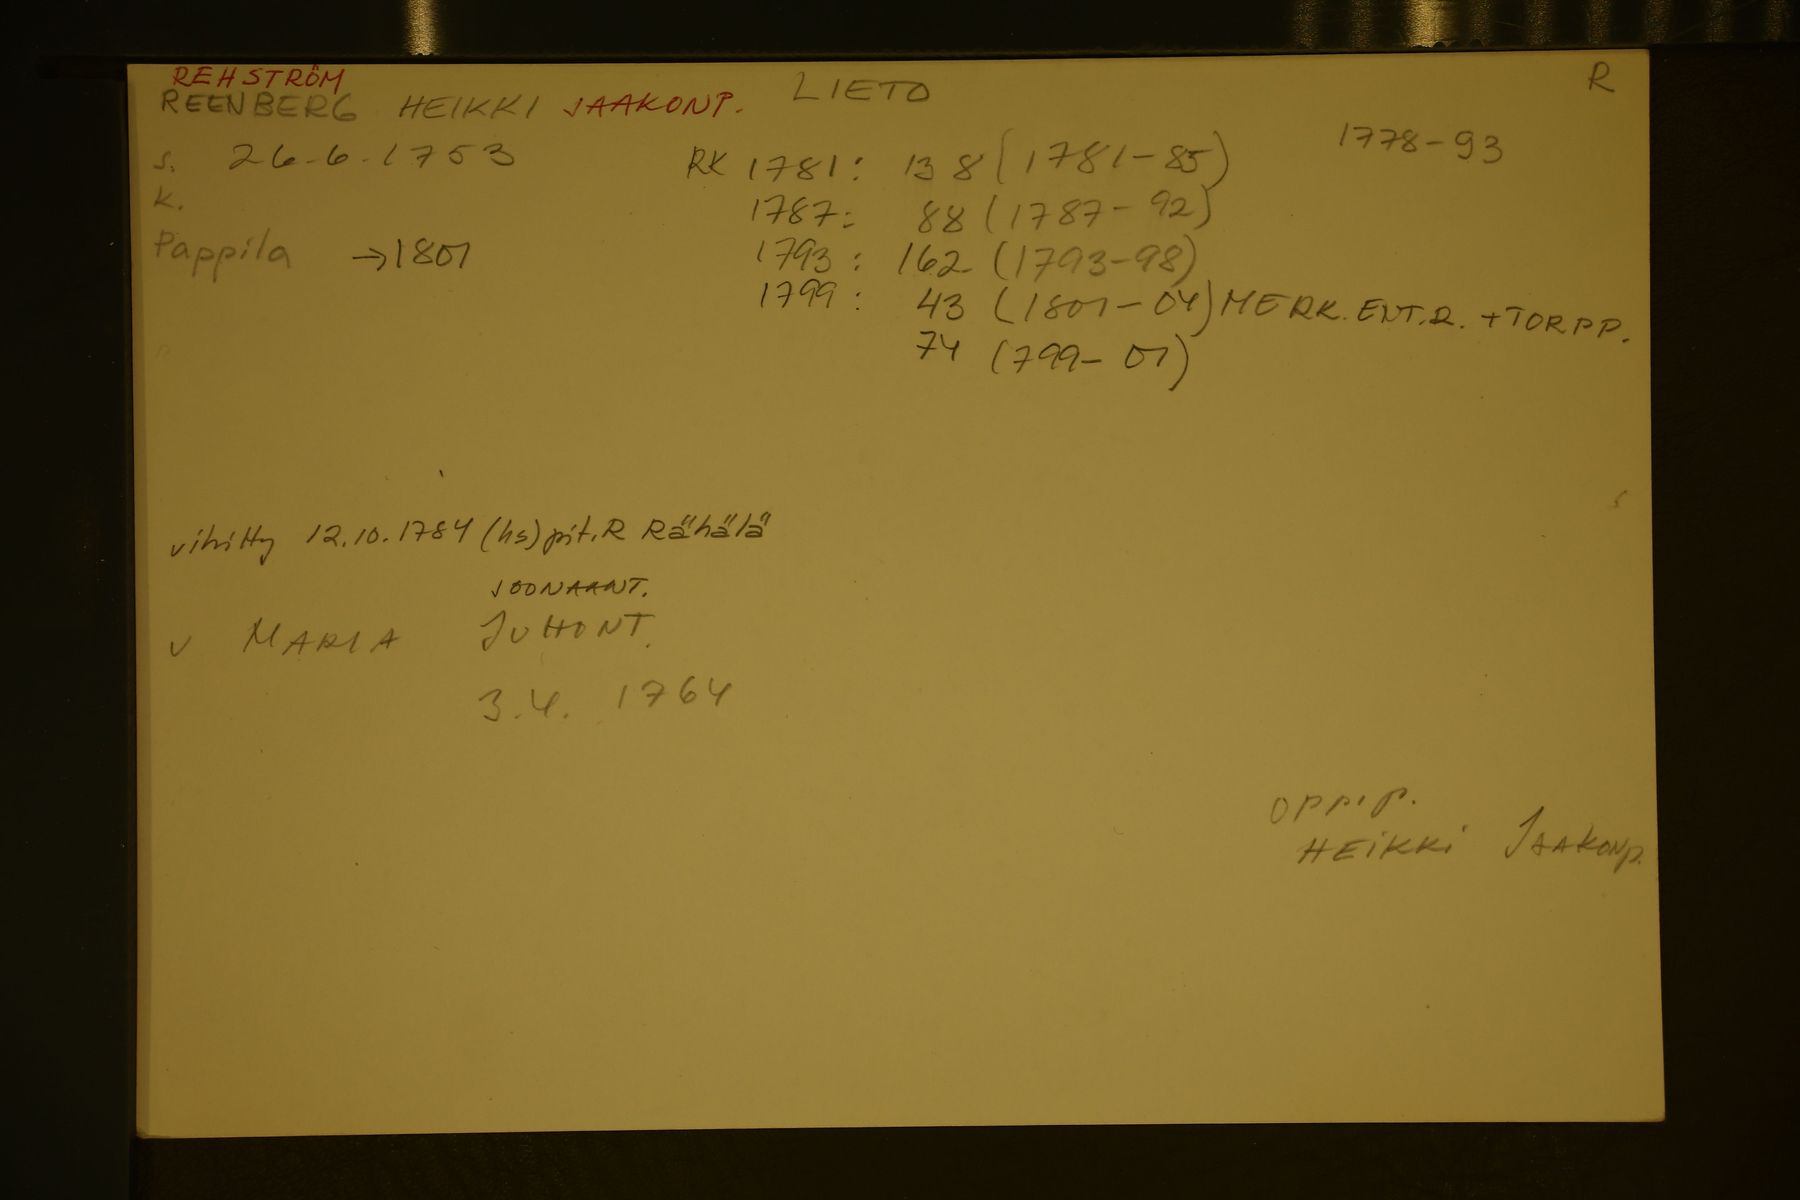 REHSTRÖM
REENBERG HEIKKI JAAKONP. LIETO R
s. 26.6.1753 RK 1781: 138 (1781-85) 1778-93
k. 1787: 88 (1787-92)
Pappila →1801 1793: 162 (1793-98)
1799: 43 (1801-04) MERK. ENT. R. + TORPP.
74 (799-01)
vihitty 12.10.1784 (hs) pit. R Rähälä
JOONAANT.
v MARIA JUHONT.
3.4. 1764
OPPIP.
HEIKKI JAAKONP.